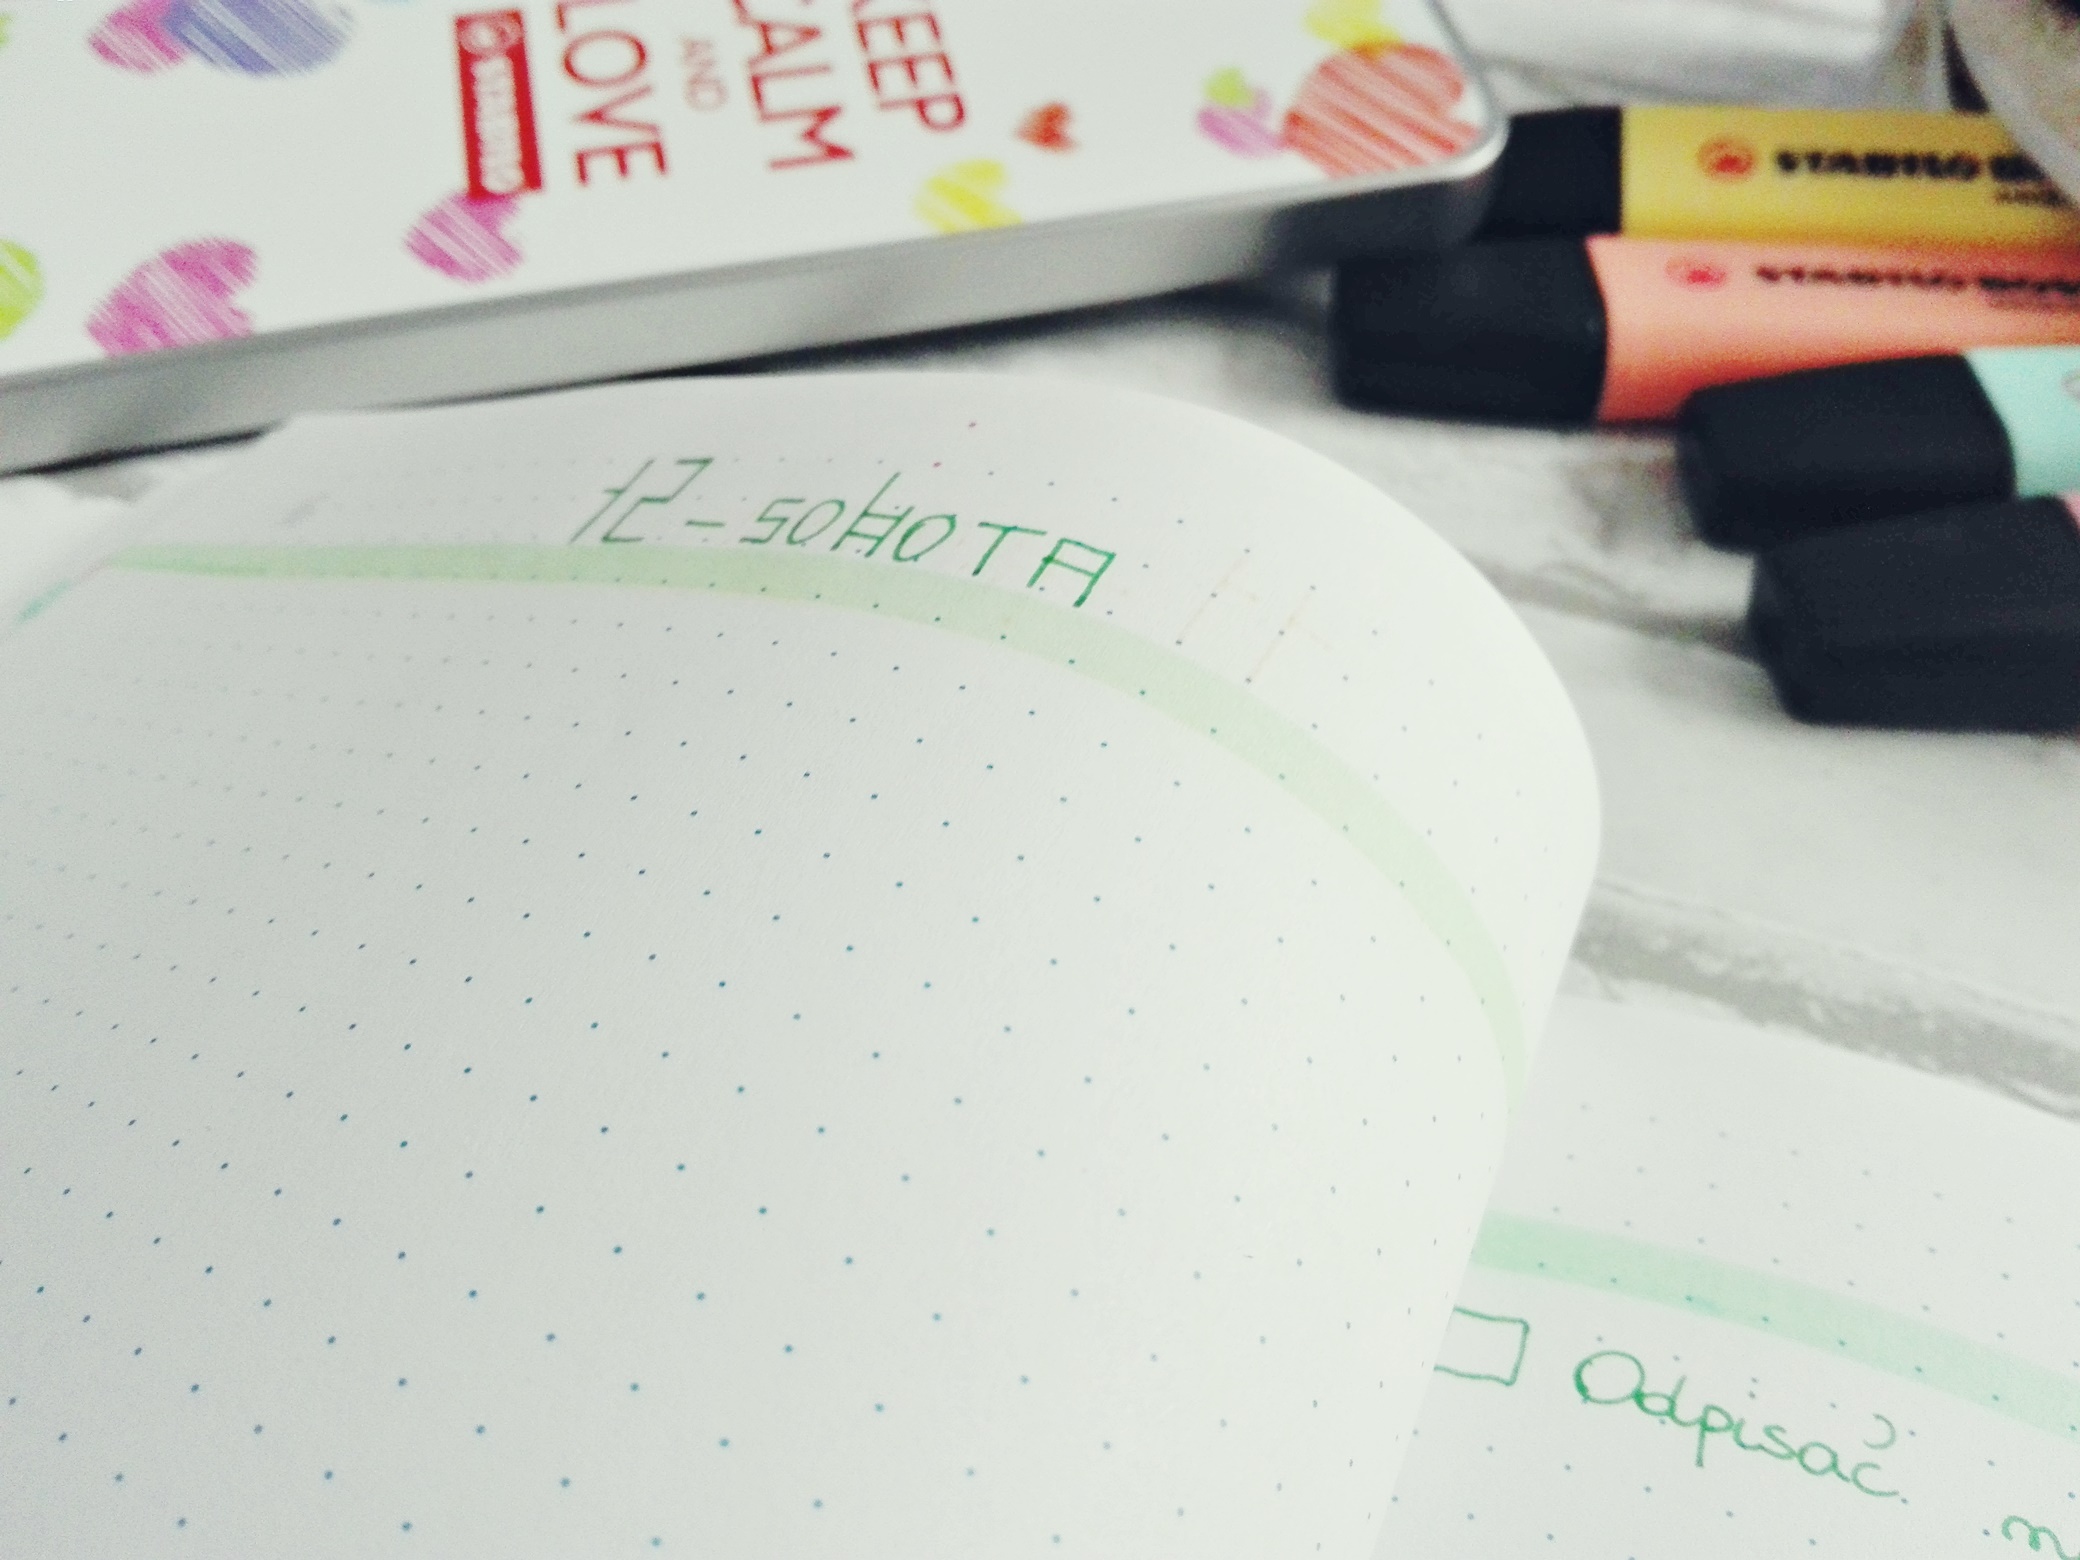 KEEP
CALM
AND
LOVE
STABILO
STABILO
STABILO
12-SOBOTA
Odpisać